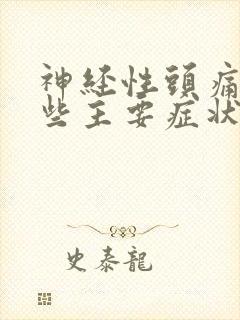 神经性頭痛
些主要症状
史泰龍